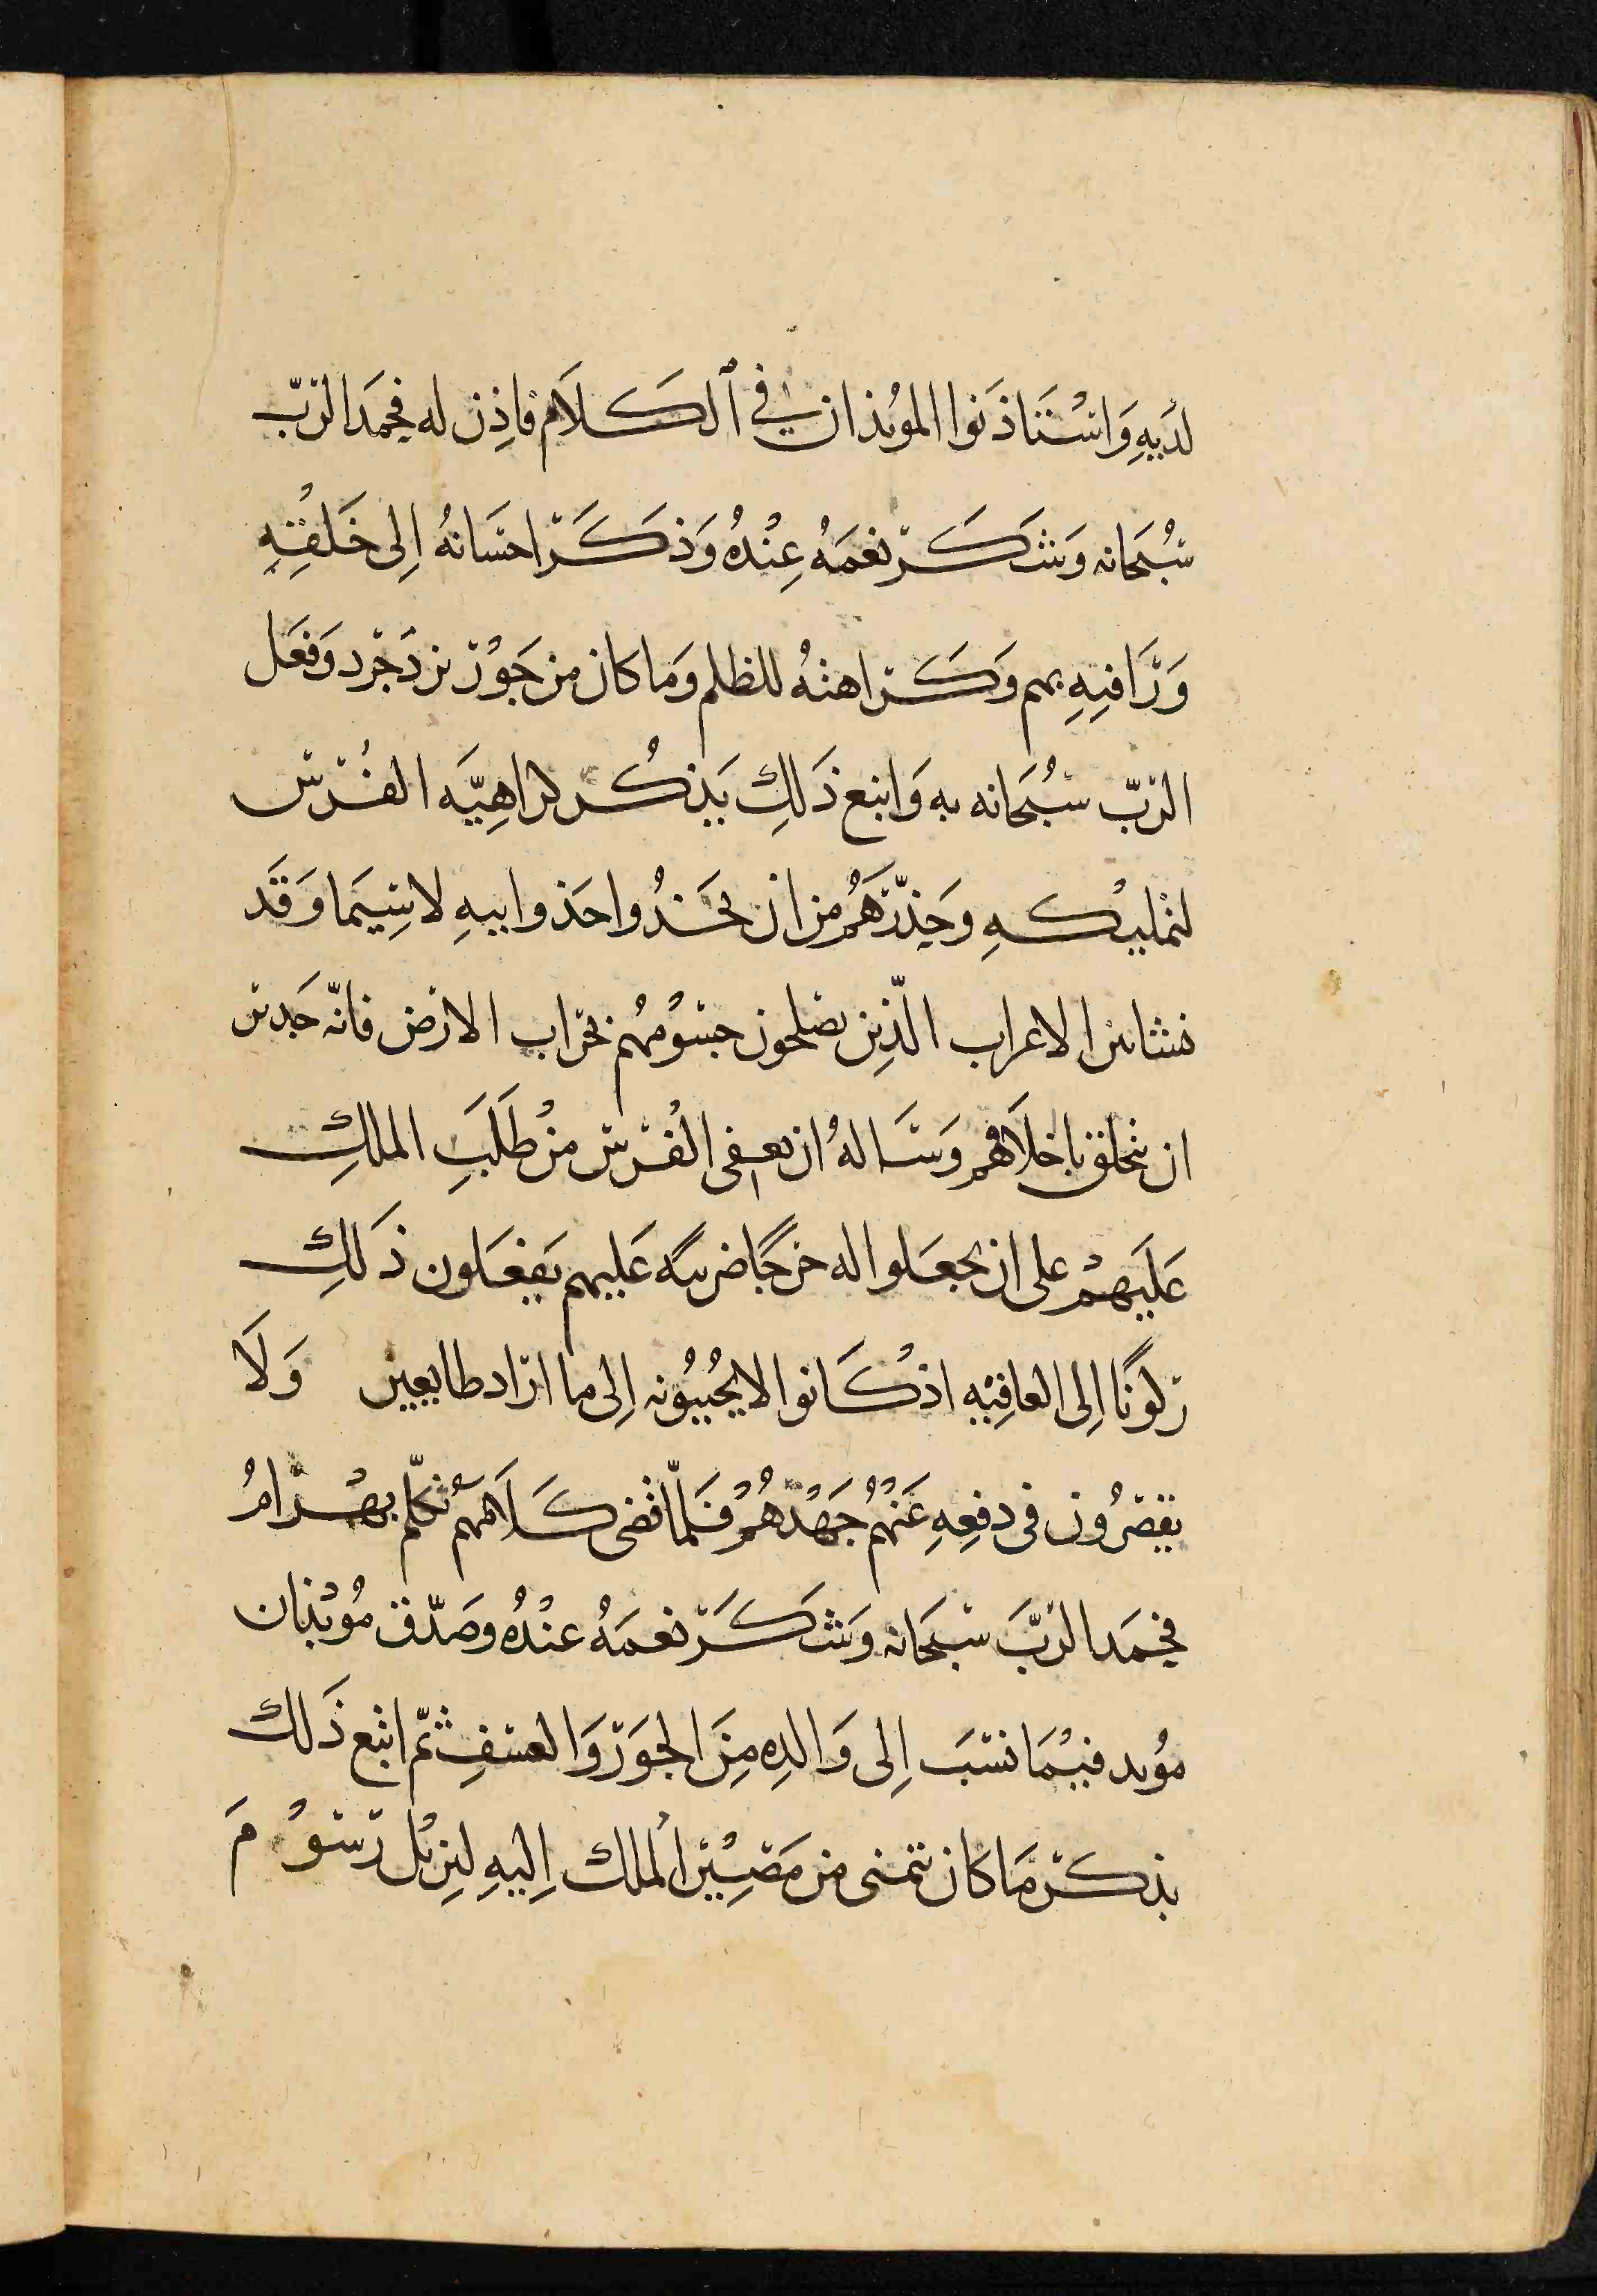 لدَيهِ وَاسْتَاذَنوا الموُبذان في الكَلَام فاذِن له فحمَد الرّبّ
سُبْحَانه وَشَكَرَ نعمَهُ عِنْدهُ وَذكَرَ احسَانهُ اِلى خَلقِهِ
وَرَافتِهِ بهم وَكَراهتهُ للظلم وَما كان من جَوْر يزدَجَرد وَفعَل
الربّ سُبْحَانه به وَاتبع ذَلكِ يَذكُر كراهِيَّه الفُرْس
لتمليكهِ وحَذّرَهُم من ان يحَذُوا حَذو ابيهِ لاسِيَمَا وَقَد
نشا بين الاعراب الّذِين يصلحون جسُومهُم بخراب الارض فانّه جَدير
ان يتخلق باخلَاقهم وَسَالهُ ان يعفى الفُرْس منْ طَلَبَ الملكِ
عَلَيهمْ على ان يجعَلوا له خرجًا ضريبَه عَليهم يَفعَلون ذَلكِ
ركونًا اِلى العافِيْه اذْ كَانوا لا يُجُيبُونه اِلى ما ارَاد طايعِين وَلَا
يقصرُون فى دفعِهِ عَنْهُمْ جَهْدَهُمْ فَلمّا قضى كَلَامهمْ تكلّم بهْرَامُ
فحمَد الربَّ سبْحَانه وَشَكَرَ نعمَهُ عنْدهُ وصَدّق مُوْبذان
مُوبد فيْمَا نسَبَ اِلى وَالدِه مِنَ الجوَرْ وَالعسْفِ ثمّ اتبع ذَلك
بذكر مَا كان يتمنى من مَصِيْر الملك اِليهِ ليزيْل رسُوْمَ